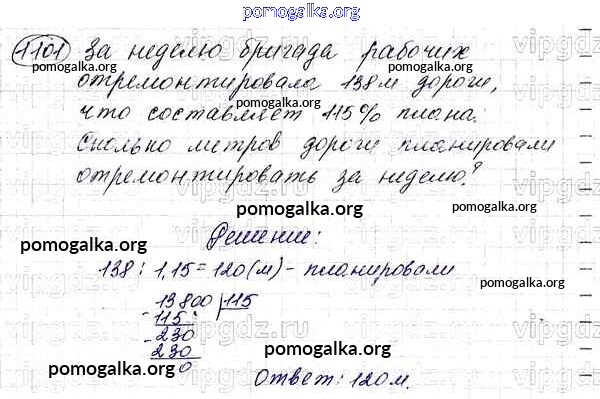 pomogalka.org
1101 За неделю бригада рабочих
отремонтировала 138 м дороги,
что составляет 115% плана.
Сколько метров дороги планировали
отремонтировать за неделю?
pomogalka.org
Решение:
pomogalka.org
138 : 1,15 = 120 (м) - планировали
pomogalka.org
13800 | 115
- 115
pomogalka.org
- 230
230
0
pomogalka.org
Ответ: 120 м.
pomogalka.org
vipgdz.ru